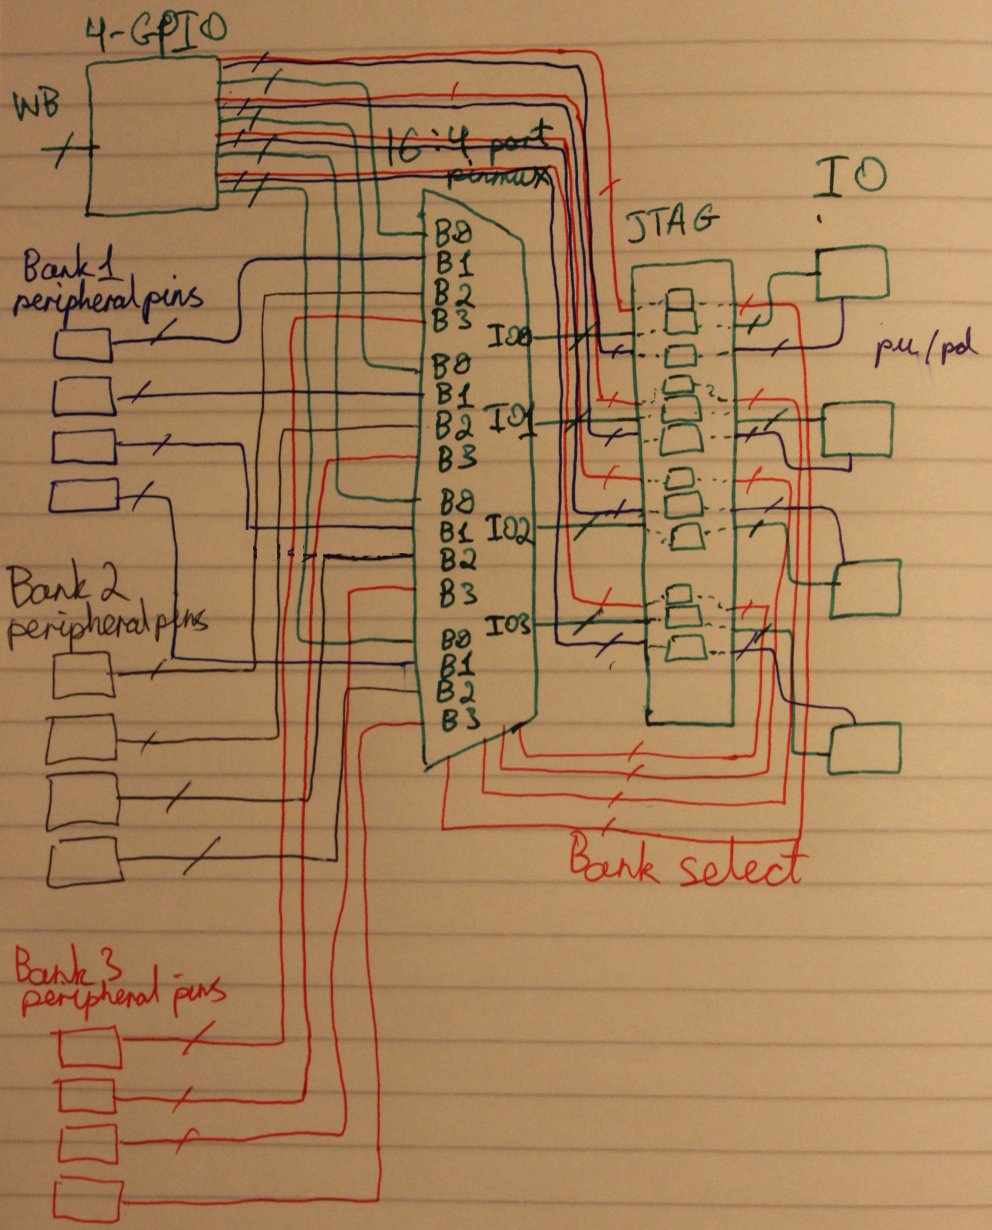 4-GPIO
WB
16:4 port
pinmux
IO
JTAG
Bank 1
peripheral pins
B0
B1
B2
B3
IO0
pu/pd
B0
B1
IO1
B2
B3
?
B0
B1
IO2
B2
Bank 2
peripheral pins
B3
IO3
B0
B1
B2
B3
Bank select
Bank 3
peripheral pins